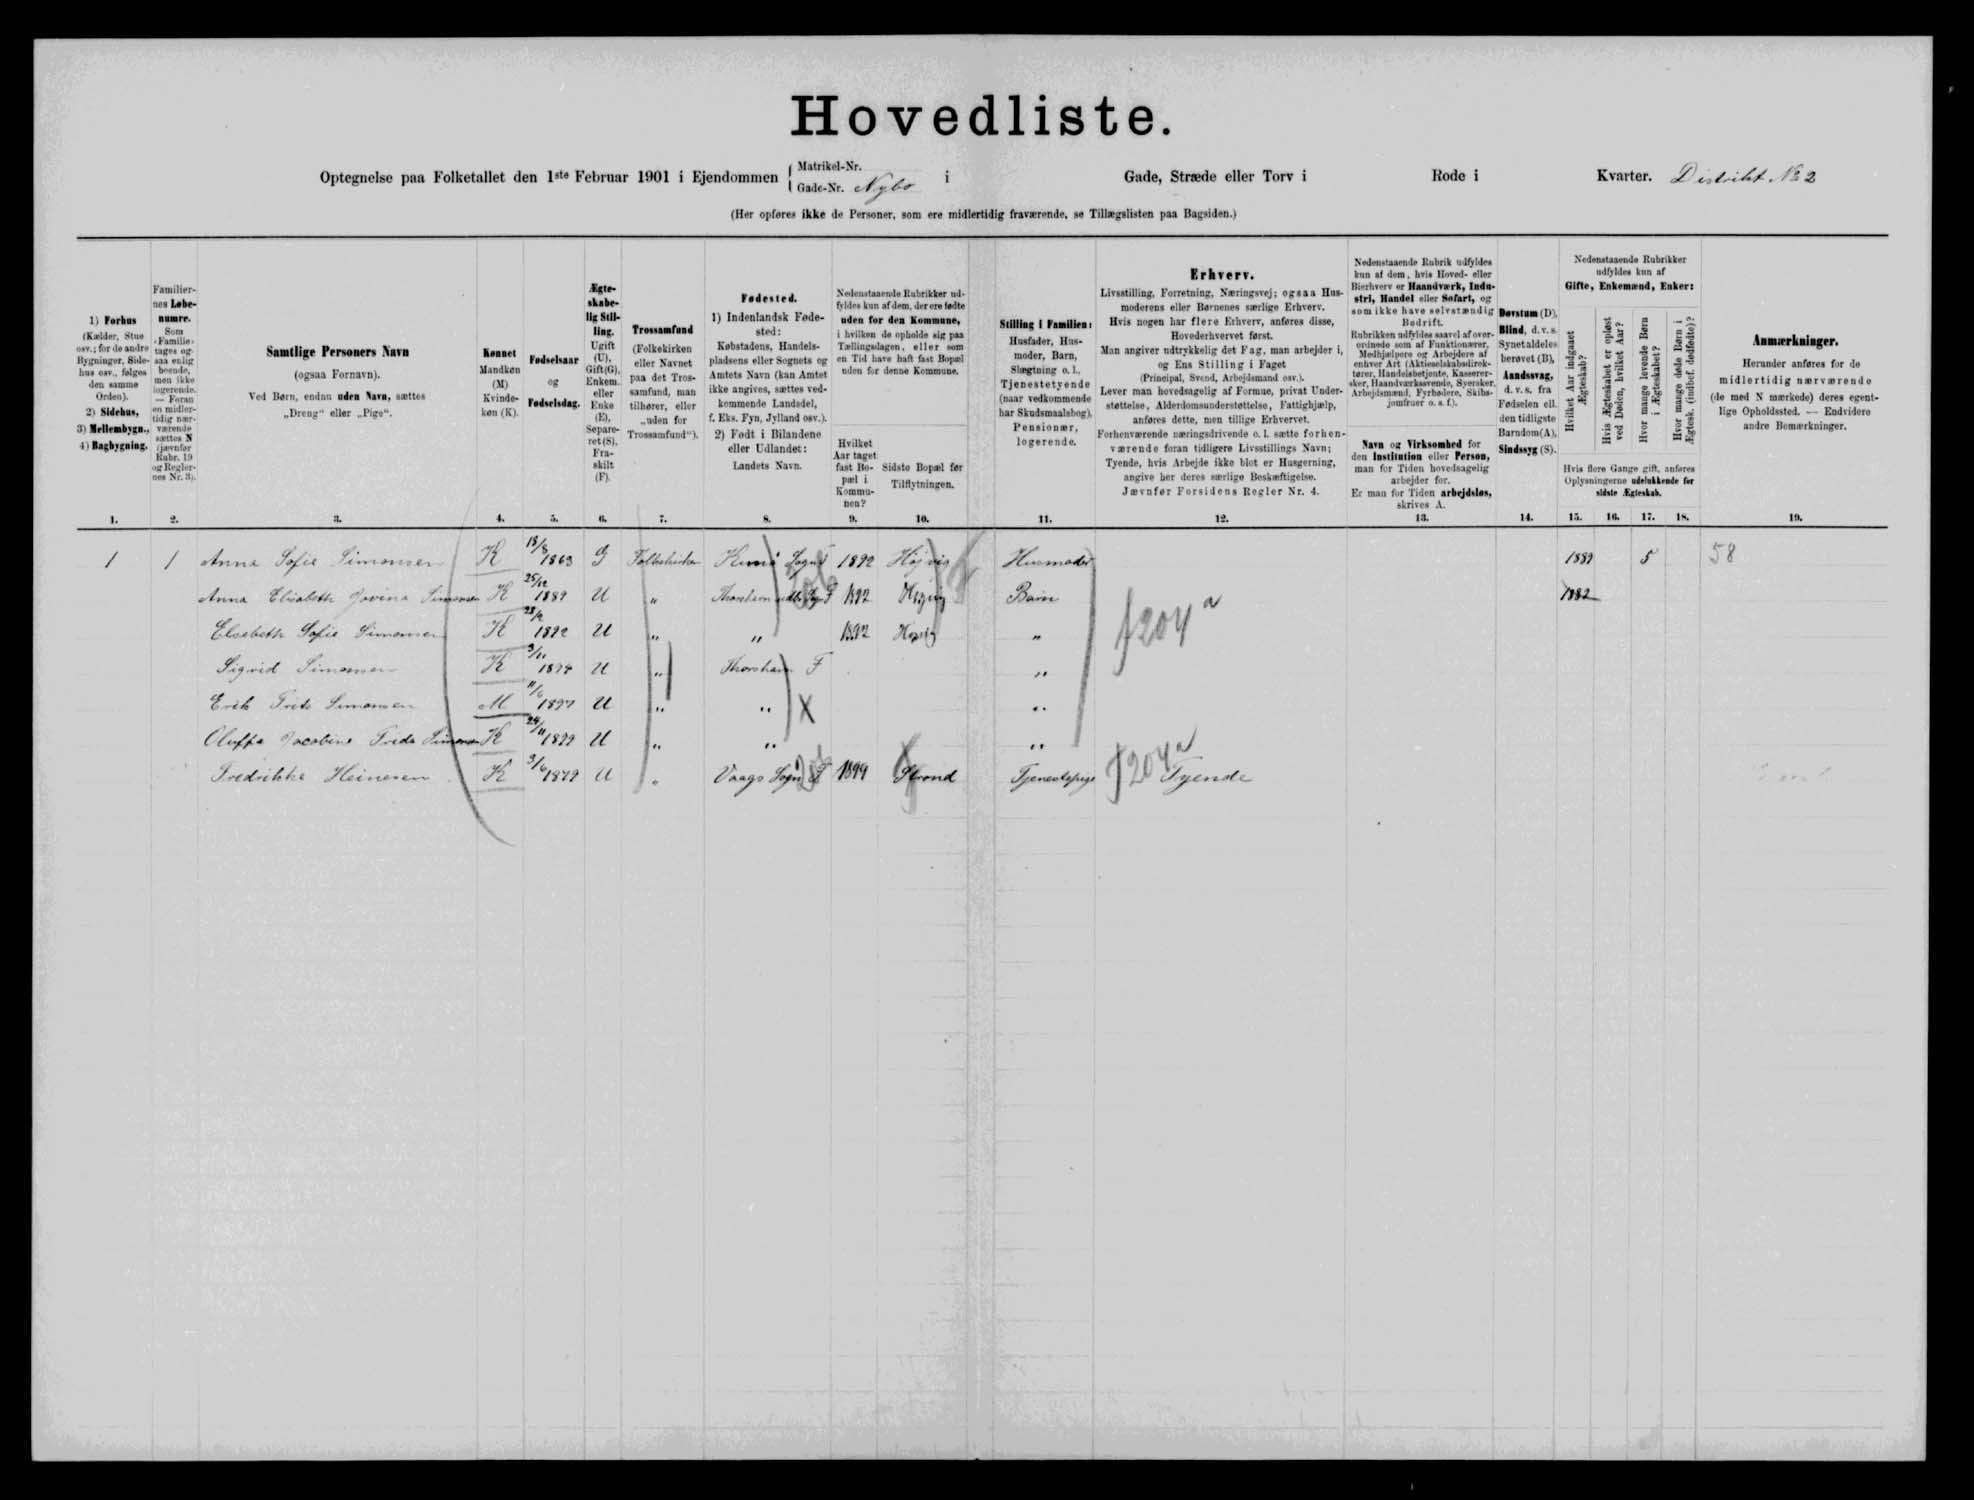 Hovedliste.
Optegnelse paa Folketallet den 1ste Februar 1901 i Ejendommen { Matrikel-Nr. Gade-Nr. Nybo i Gade, Stræde eller Torv i Rode i Kvarter. Distrikt No 2
(Her opføres ikke de Personer, som ere midlertidig fraværende, se Tillægslisten paa Bagsiden.)
1) Forhus
(Kælder, Stue
osv.; for de andre
Bygninger, Side-
hus osv., følges
den samme
Orden).
2) Sidehus,
3) Mellembygn.,
4) Bagbygning.
1.
Familier-
nes Løbe-
numre.
Som
"Familie"
tages og-
saa enlig
boende,
men ikke
logerende.
— Foran
en midler-
tidig nær-
værende
sættes N
(jævnfør
Rubr. 19
og Regler-
nes Nr. 3).
2.
Samtlige Personers Navn
(ogsaa Fornavn).
Ved Børn, endnu uden Navn, sættes
„Dreng“ eller „Pige“.
3.
Kønnet
Mandkøn
(M)
Kvinde-
køn (K).
4.
Fødselsaar
og
Fødselsdag.
5.
Ægte-
skabe-
lig Stil-
ling.
Ugift
(U),
Gift(G),
Enkem.
eller
Enke
(E),
Separe-
ret(S),
Fra-
skilt
(F).
6.
Trossamfund
(Folkekirken
eller Navnet
paa det Tros-
samfund, man
tilhører, eller
„uden for
Trossamfund“).
7.
Fødested.
1) Indenlandsk Føde-
sted:
Købstadens, Handels-
pladsens eller Sognets og
Amtets Navn (kan Amtet
ikke angives, sættes ved-
kommende Landsdel,
f. Eks. Fyn, Jylland osv.).
2) Født i Bilandene
eller Udlandet:
Landets Navn.
8.
Nedenstaaende Rubrikker ud-
fyldes kun af dem, der ere fødte
uden for den Kommune,
i hvilken de opholde sig paa
Tællingsdagen, eller som
en Tid have haft fast Bopæl
uden for denne Kommune.
Hvilket
Aar taget
fast Bo-
pæl i
Kommu-
nen?
9.
Sidste Bopæl før
Tilflytningen.
10.
Stilling i Familien:
Husfader, Hus-
moder, Barn,
Slægtning o. l.,
Tjenestetyende
(naar vedkommende
har Skudsmaalsbog),
Pensionær,
logerende.
11.
Erhverv.
Livsstilling, Forretning, Næringsvej; ogsaa Hus-
moderens eller Børnenes særlige Erhverv.
Hvis nogen har flere Erhverv, anføres disse,
Hovederhvervet først.
Man angiver udtrykkelig det Fag, man arbejder i,
og Ens Stilling i Faget
(Principal, Svend, Arbejdsmand osv.).
Lever man hovedsagelig af Formue, privat Under-
støttelse, Alderdomsunderstøttelse, Fattighjælp,
anføres dette, men tillige Erhvervet.
Forhenværende næringsdrivende o. l. sætte forhen-
værende foran tidligere Livsstillings Navn;
Tyende, hvis Arbejde ikke blot er Husgerning,
angive her deres særlige Beskæftigelse.
Jævnfør Forsidens Regler Nr. 4.
12.
Nedenstaaende Rubrik udfyldes
kun af dem, hvis Hoved- eller
Bierhverv er Haandværk, Indu-
stri, Handel eller Søfart, og
som ikke have selvstændig
Bedrift.
Rubrikken udfyldes saavel af over-
ordnede som af Funktionærer,
Medhjælpere og Arbejdere af
enhver Art (Aktieselskabsdirek-
tører, Handelsbetjente, Kasserer-
sker, Haandværkssvende, Syersker,
Arbejdsmænd, Fyrbødere, Skibs-
jomfruer o. s. f.).
Navn og Virksomhed for
den Institution eller Person,
man for Tiden hovedsagelig
arbejder for.
Er man for Tiden arbejdsløs,
skrives A.
13.
Døvstum (D),
Blind, d. v. s.
Synet aldeles
berøvet (B),
Aandssvag,
d. v. s. fra
Fødselen ell.
den tidligste
Barndom(A),
Sindssyg (S).
14.
Nedenstaaende Rubrikker
udfyldes kun af
Gifte, Enkemænd, Enker:
Hvilket Aar indgaaet
Ægteskab?
Hvis Ægteskabet er opløst
ved Døden, hvilket Aar?
Hvor mange levende Børn
i Ægteskabet?
Hvor mange døde Børn i
Ægtesk. (indbef. dødfødte)?
Hvis flere Gange gift, anføres
Oplysningerne udelukkende for
sidste Ægteskab.
15. 16. 17. 18.
Anmærkninger.
Herunder anføres for de
midlertidig nærværende
(de med N mærkede) deres egent-
lige Opholdssted. — Endvidere
andre Bemærkninger.
19.
1 1 Anna Sofie Simonsen K 18/8 1863 G Folkekirken Kunø Sogn F 1892 Højvig Husmoder 1889 5 58
Anna Elisabeth Jovina Simonsen K 25/12 1889 U " Thorshavn F 1892 Højvig Barn 1882
Elsebeth Sofie Simonsen K 1892 U " " 1892 Højvig " f 204 a
Sigrid Simonsen K U " Thorshavn F "
Erik Frits Simonsen M 11/6 1897 U " " X "
Oluffa Jacobine Frida Simonsen K 24/11 1899 U " " "
Fredrikke Heinesen K 3/6 1879 U " Vaags Sogn F 1899 Strond Tjenestepige f 204 a Tyende